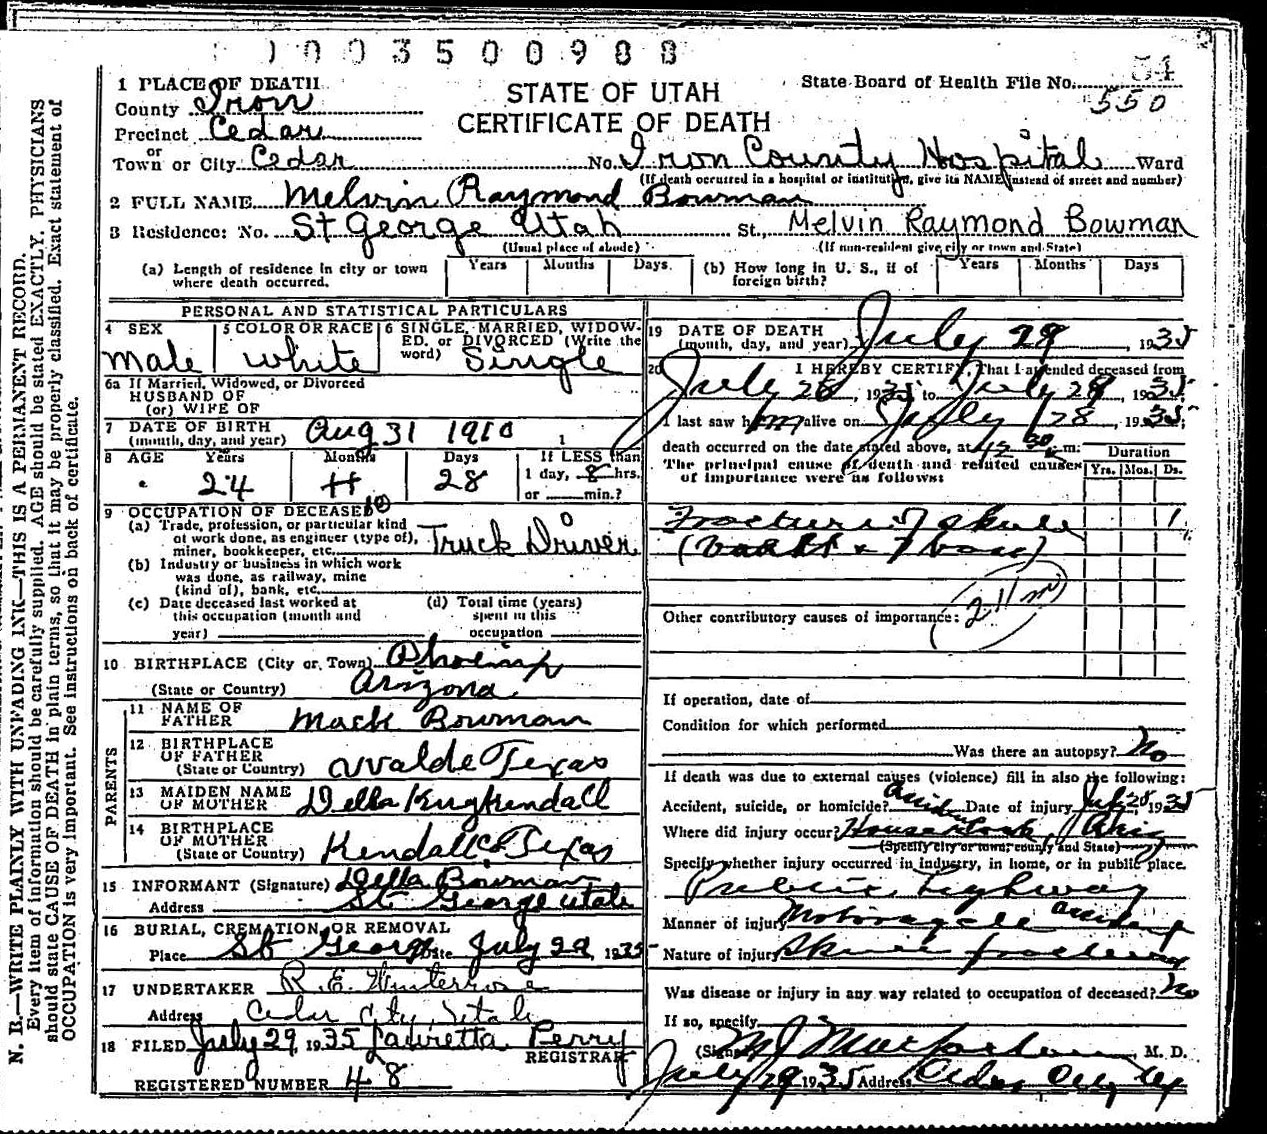 1003500988
STATE OF UTAH
CERTIFICATE OF DEATH
State Board of Health File No. 54
550
1 PLACE OF DEATH
County Iron
Precinct Cedar
or
Town or City Cedar No. Iron County Hospital Ward
(If death occurred in a hospital or institution, give its NAME instead of street and number)
2 FULL NAME Melvin Raymond Bowman
3 Residence: No. St George Utah St., Melvin Raymond Bowman
(Usual place of abode) (If non-resident give city or town and State)
(a) Length of residence in city or town where death occurred. Years Months Days. (b) How long in U. S., if of foreign birth? Years Months Days
PERSONAL AND STATISTICAL PARTICULARS
4 SEX Male
5 COLOR OR RACE White
6 SINGLE, MARRIED, WIDOWED, OR DIVORCED (Write the word) Single
6a If Married, Widowed, or Divorced
HUSBAND OF
(or) WIFE OF
7 DATE OF BIRTH
(month, day, and year) Aug 31 1910
8 AGE Years Months Days If LESS than
24 28 1 day, 8 hrs.
or min.?
9 OCCUPATION OF DECEASED
(a) Trade, profession, or particular kind
of work done, as engineer (type of),
miner, bookkeeper, etc. Truck Driver
(b) Industry or business in which work
was done, as railway, mine
(kind of), bank, etc.
(c) Date deceased last worked at
this occupation (month and
year)
(d) Total time (years)
spent in this
occupation
10 BIRTHPLACE (City or Town) Phoenix
(State or Country) Arizona
PARENTS
11 NAME OF
FATHER Mack Bowman
12 BIRTHPLACE
OF FATHER
(State or Country) Uvalde Texas
13 MAIDEN NAME
OF MOTHER Della Kuykendall
14 BIRTHPLACE
OF MOTHER
(State or Country) Kendall Co Texas
15 INFORMANT (Signature) Della Bowman
Address St. George Utah
16 BURIAL, CREMATION, OR REMOVAL
Place St George Date July 29, 1935
17 UNDERTAKER R. E.
Address Cedar City, Utah
18 FILED July 29, 1935 Lauretta Perry
REGISTRAR
REGISTERED NUMBER 48
19 DATE OF DEATH
(month, day, and year) July 28, 1935
20 I HEREBY CERTIFY, That I attended deceased from
July 28, 1935 to July 28, 1935
I last saw him alive on July 28, 1935;
death occurred on the date stated above, at m.
The principal cause of death and related causes
of importance were as follows:
Duration
Yrs. Mos. Ds.
Fracture of skull 1
(vault & base)
Other contributory causes of importance:
If operation, date of
Condition for which performed
Was there an autopsy? No
If death was due to external causes (violence) fill in also the following:
Accident, suicide, or homicide? Date of injury July 28, 1935
Where did injury occur? House Rock, Ariz
(Specify city or town, county and State)
Specify whether injury occurred in industry, in home, or in public place.
Public Highway
Manner of injury Motorcycle accident
Nature of injury Skull fracture
Was disease or injury in any way related to occupation of deceased? No
If so, specify
(Signed) M J Macfarlane, M. D.
July 29 1935 Address Cedar City Ut
N. B.—WRITE PLAINLY WITH UNFADING INK—THIS IS A PERMANENT RECORD.
Every item of information should be carefully supplied. AGE should be stated EXACTLY. PHYSICIANS
should state CAUSE OF DEATH in plain terms, so that it may be properly classified. Exact statement of
OCCUPATION is very important. See instructions on back of certificate.